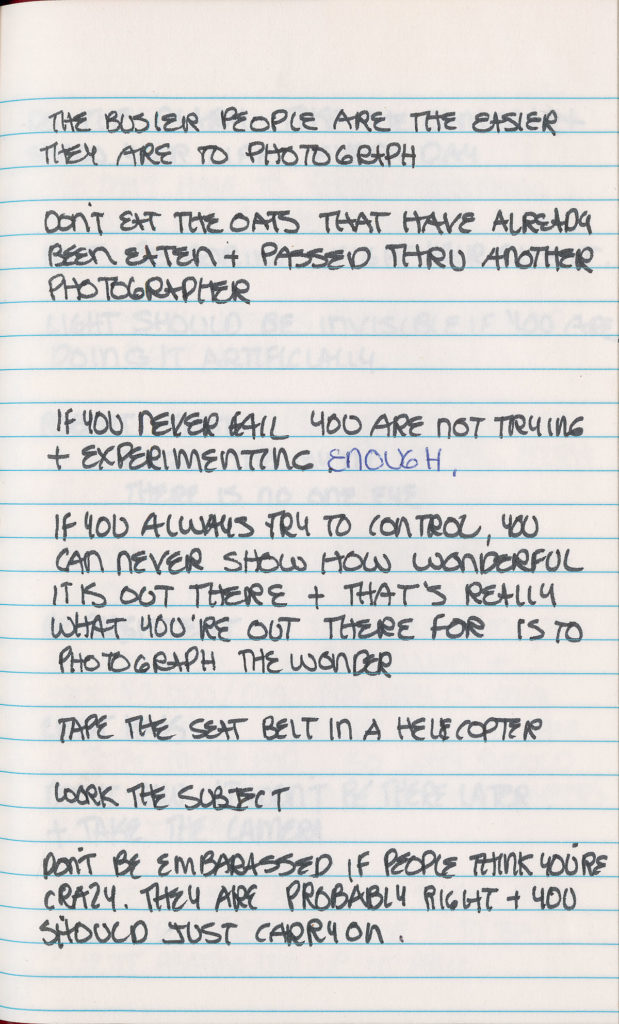 THE BUSIER PEOPLE ARE THE EASIER
THEY ARE TO PHOTOGRAPH
DON'T EAT THE OATS THAT HAVE ALREADY
BEEN EATEN + PASSED THRU ANOTHER
PHOTOGRAPHER
LIGHT SHOULD BE INVISIBLE IF YOU ARE
DOING IT ARTIFICIALLY.
IF YOU NEVER FAIL YOU ARE NOT TRYING
+ EXPERIMENTING ENOUGH.
THERE IS NO ONE EYE
IF YOU ALWAYS TRY TO CONTROL, YOU
CAN NEVER SHOW HOW WONDERFUL
IT IS OUT THERE + THAT'S REALLY
WHAT YOU'RE OUT THERE FOR IS TO
PHOTOGRAPH THE WONDER
TAPE THE SEAT BELT IN A HELECOPTER
WORK THE SUBJECT
+ TAKE THE CAMERA
DON'T BE EMBARASSED IF PEOPLE THINK YOU'RE
CRAZY. THEY ARE PROBABLY RIGHT + YOU
SHOULD JUST CARRY ON.